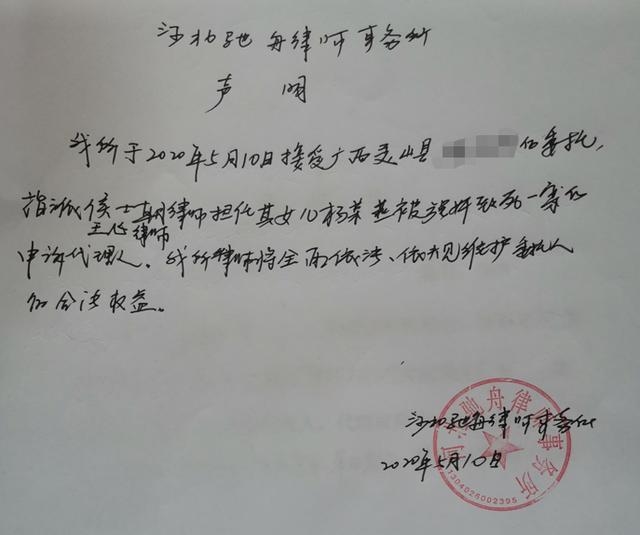 河北驰舟律师事务所
声 明
我所于2020年5月10日接受广西灵山县 的委托,
指派侯士朝律师担任其女儿杨某燕被强奸致死一案的
王飞律师
申诉代理人。我所律师将全面依法、依规维护委托人
的合法权益。
河北驰舟律师事务所
2020年5月10日
河北驰舟律师事务所
1304026002395